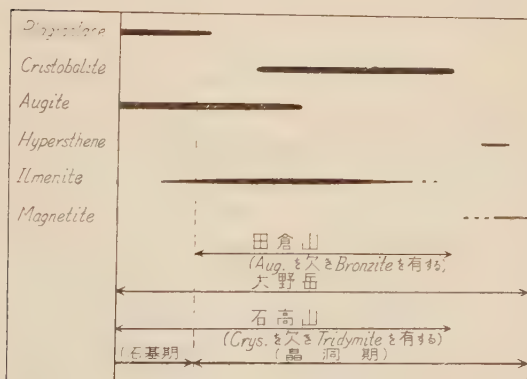 Plagioclase
Cristobalite
Augite
Hypersthene
Ilmenite
Magnetite
田倉山
(Aug. を欠き Bronzite を有する,
大野岳
石高山
(Crys. を欠き Tridymite を有する)
(石基期 (晶洞期)